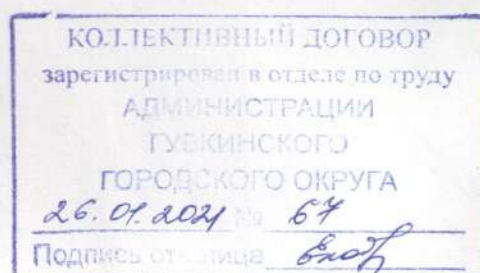 КОЛЛЕКТИВНЫЙ ДОГОВОР
зарегистрирован в отделе по труду
АДМИНИСТРАЦИИ
ГУБКИНСКОГО
ГОРОДСКОГО ОКРУГА
26.01.2021 № 67
Подпись отв. лица